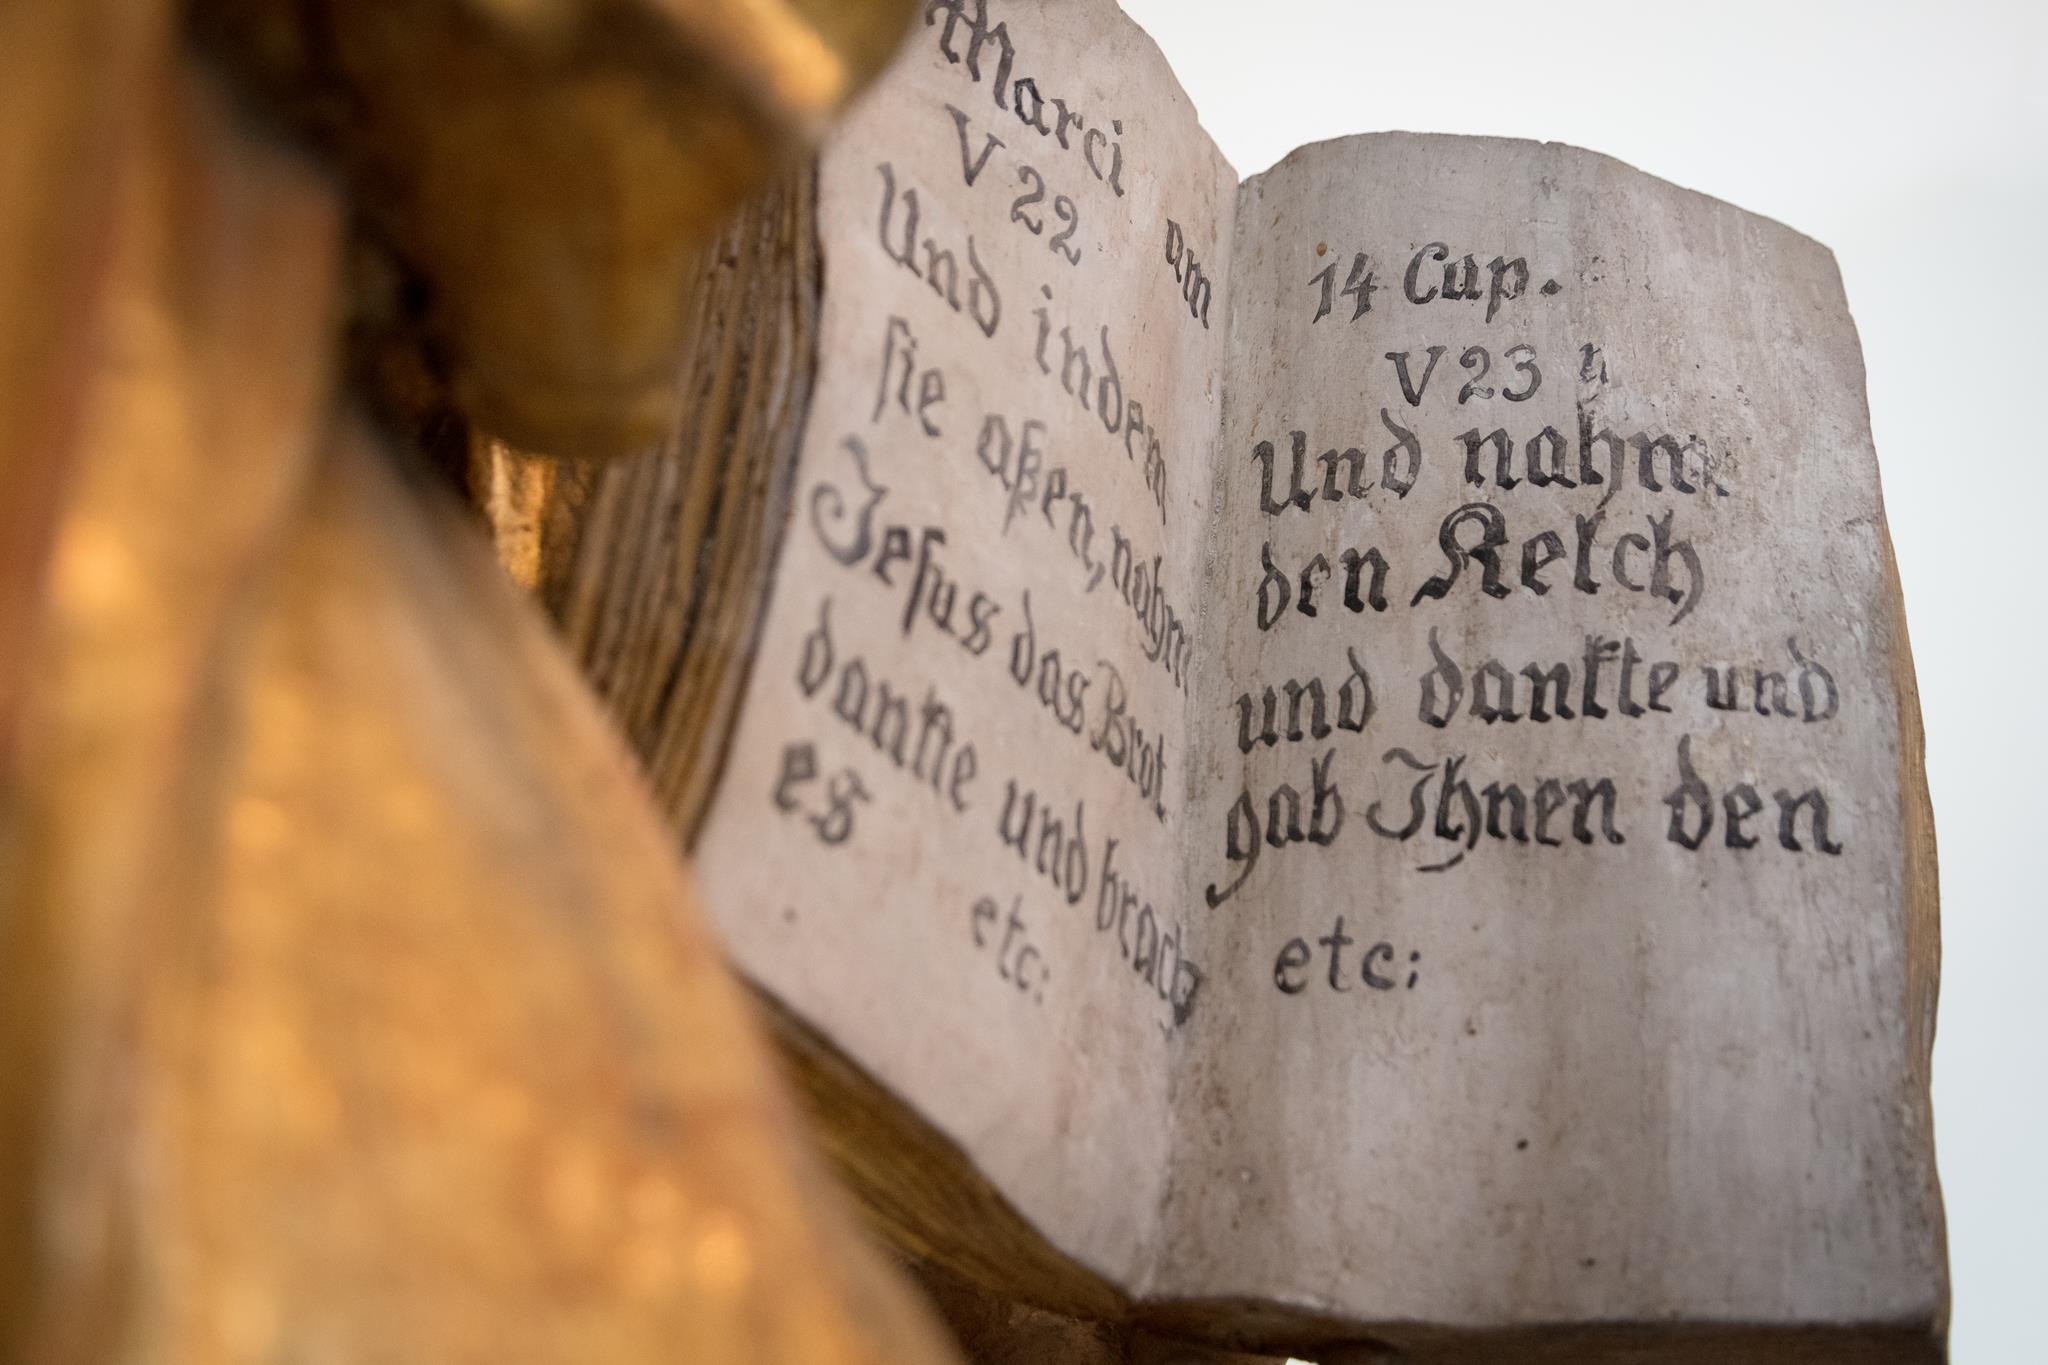 Marci am
V 22
Und indem
sie aßen, nahm
Jesus das Brot
dankte und brach
es
etc:
14 Cap.
V 23
Und nahm
den Kelch
und dankte und
gab Ihnen den
etc: